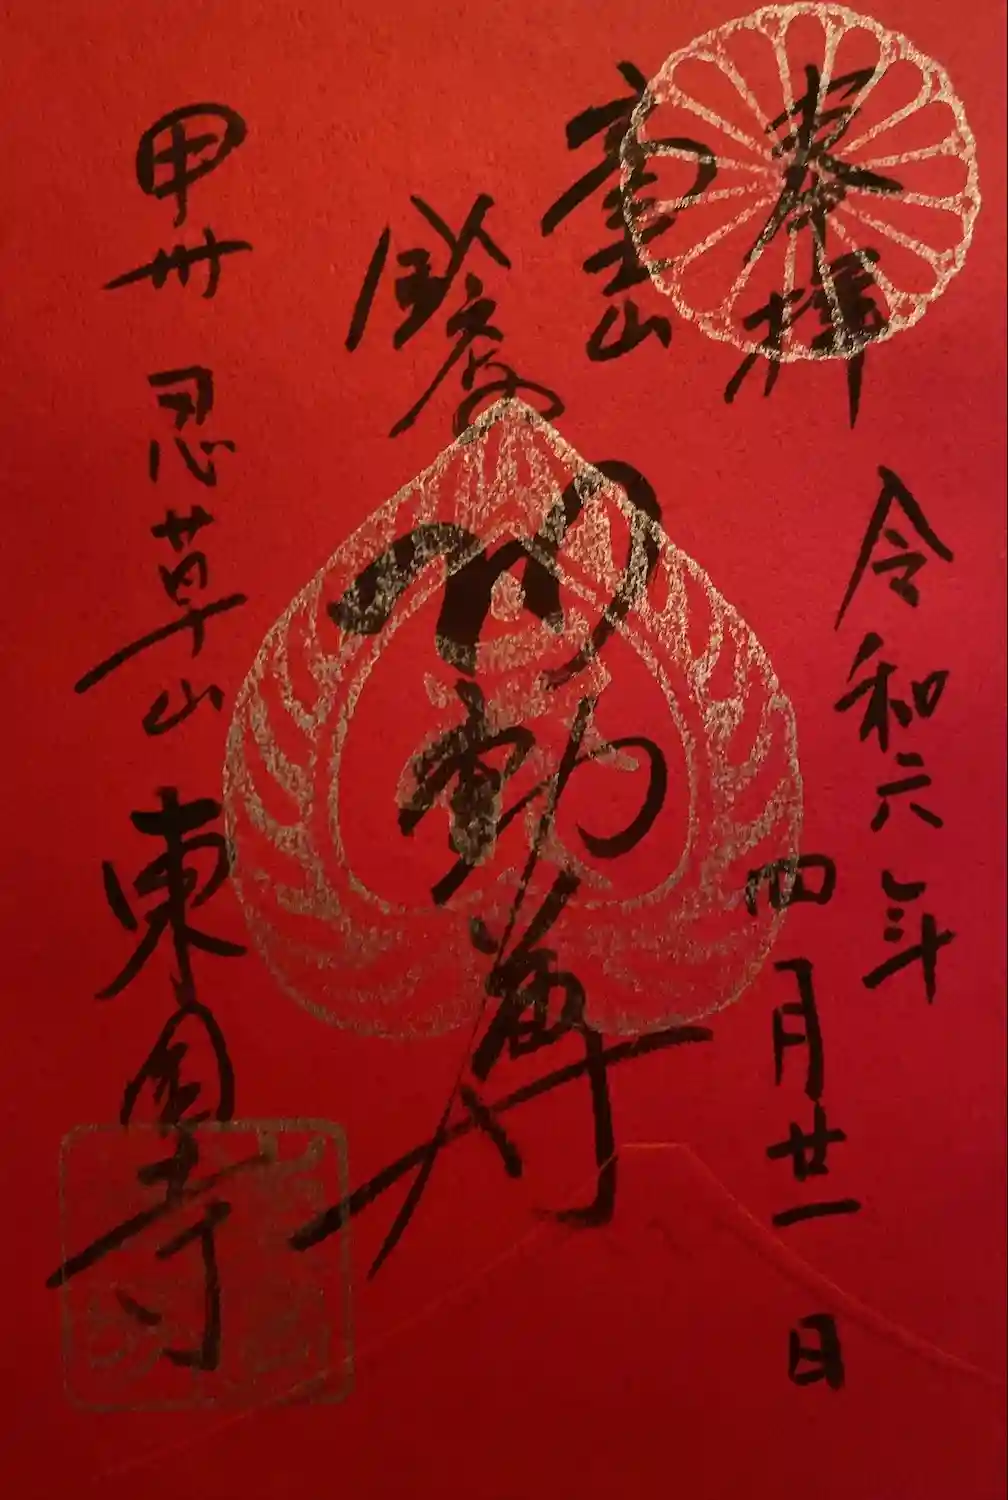 奉拝
令和六年
四月廿一日
富士山
不動尊
甲州 忍草山 東圓寺